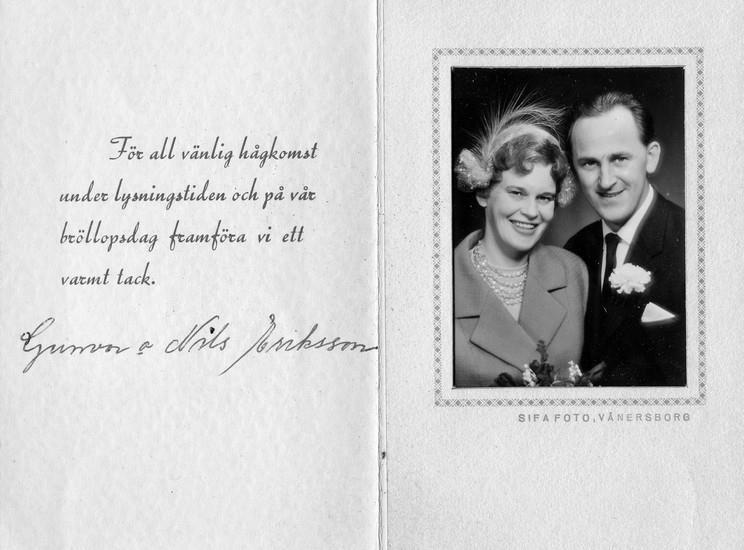 För all vänlig hågkomst
under lysningstiden och på vår
bröllopsdag framföra vi ett
varmt tack.
Gunvor o Nils Eriksson
SIFA FOTO, VÄNERSBORG